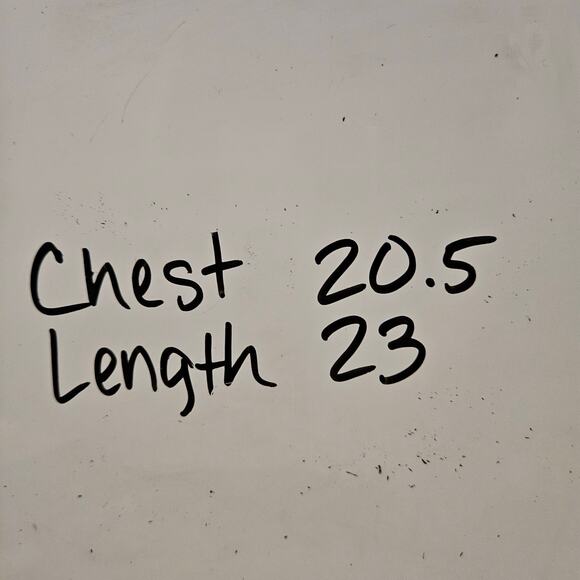 Chest 20.5
Length 23